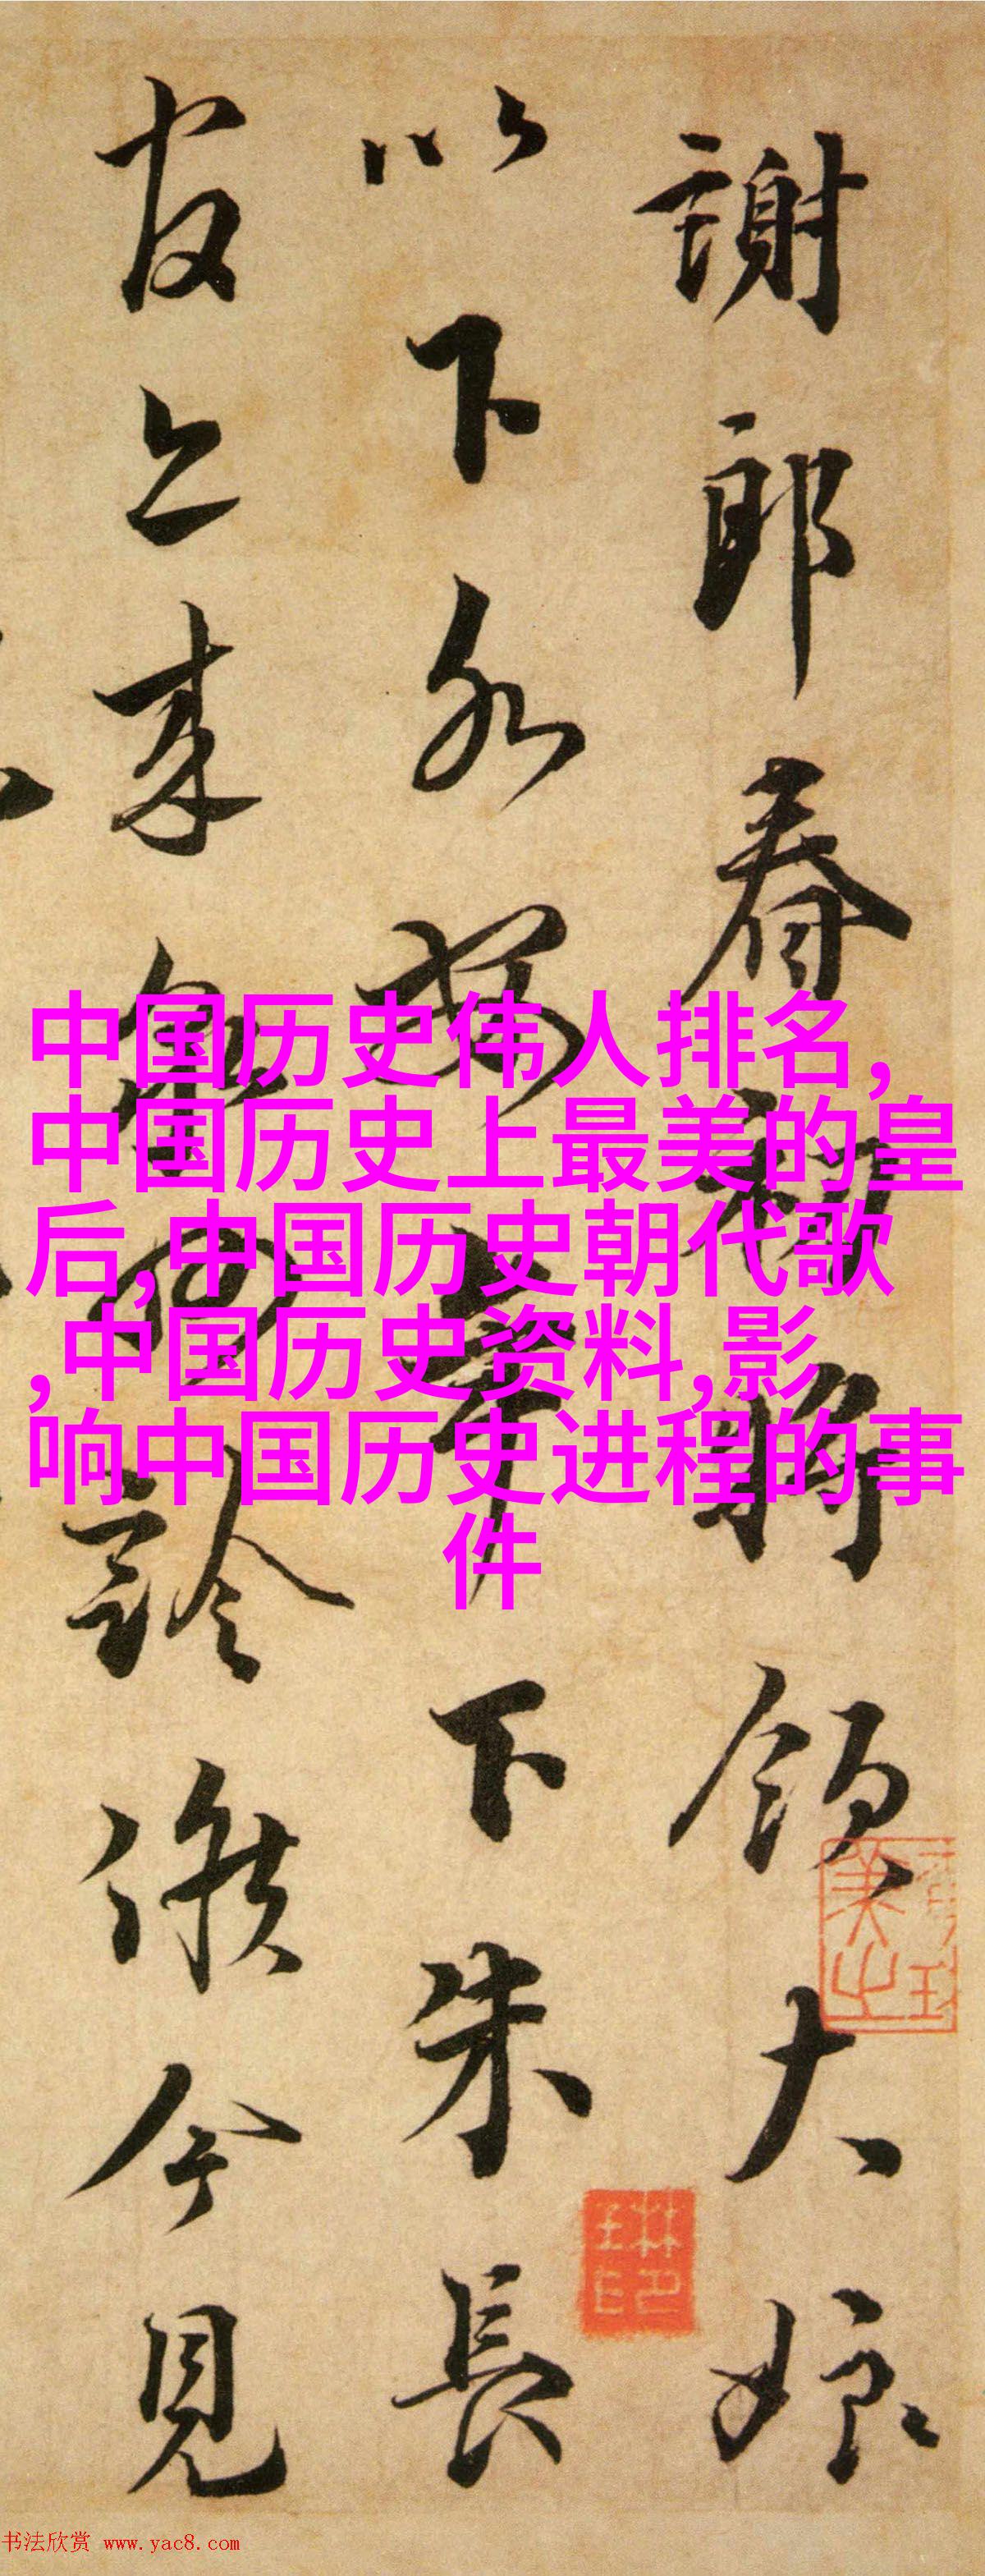 謝郎春初將領大娘
以下永嫂
下朱長
官上来
診候今見
中国历史伟人排名,
中国历史上最美的皇
后,中国历史朝代歌
,中国历史资料,影
响中国历史进程的事
件
书法欣赏 www.yac8.com